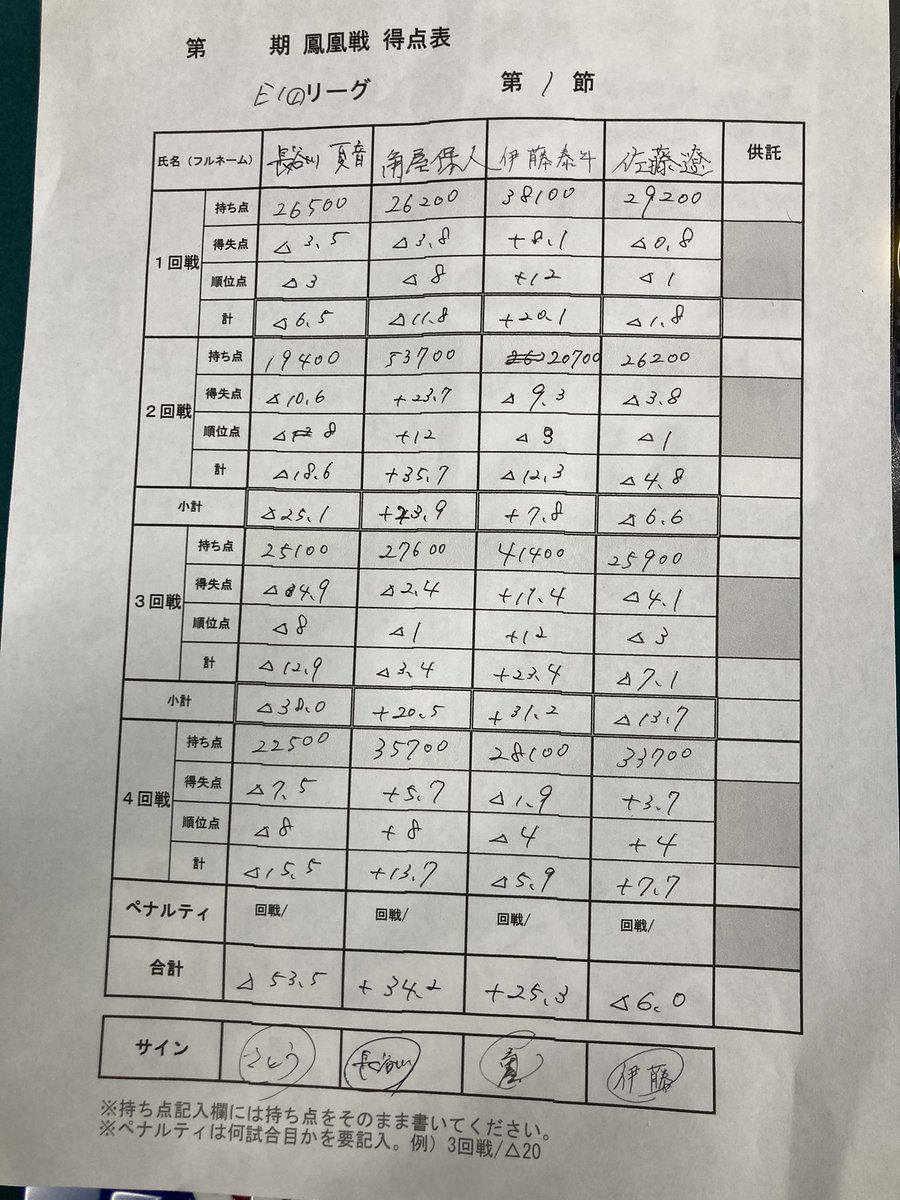 第 期 鳳凰戦 得点表
E1①リーグ 第 1 節
氏名（フルネーム） 長谷川 夏音 角屋保人 伊藤泰斗 佐藤遼 供託
1回戦
持ち点 26500 26200 38100 29200
得失点 △3.5 △3.8 +8.1 △0.8
順位点 △3 △8 +12 △1
計 △6.5 △11.8 +20.1 △1.8
2回戦
持ち点 19400 53700 20700 26200
得失点 △10.6 +23.7 △9.3 △3.8
順位点 △8 +12 △3 △1
計 △18.6 +35.7 △12.3 △4.8
小計 △25.1 +23.9 +7.8 △6.6
3回戦
持ち点 25100 27600 41400 25900
得失点 △4.9 △2.4 +11.4 △4.1
順位点 △8 △1 +12 △3
計 △12.9 △3.4 +23.4 △7.1
小計 △38.0 +20.5 +31.2 △13.7
4回戦
持ち点 22500 35700 28100 33700
得失点 △7.5 +5.7 △1.9 +3.7
順位点 △8 +8 △4 +4
計 △15.5 +13.7 △5.9 +7.7
ペナルティ 回戦/ 回戦/ 回戦/ 回戦/
合計 △53.5 +34.2 +25.3 △6.0
サイン さとう 長谷川 伊藤
※持ち点記入欄には持ち点をそのまま書いてください。
※ペナルティは何試合目かを要記入。例）3回戦/△20